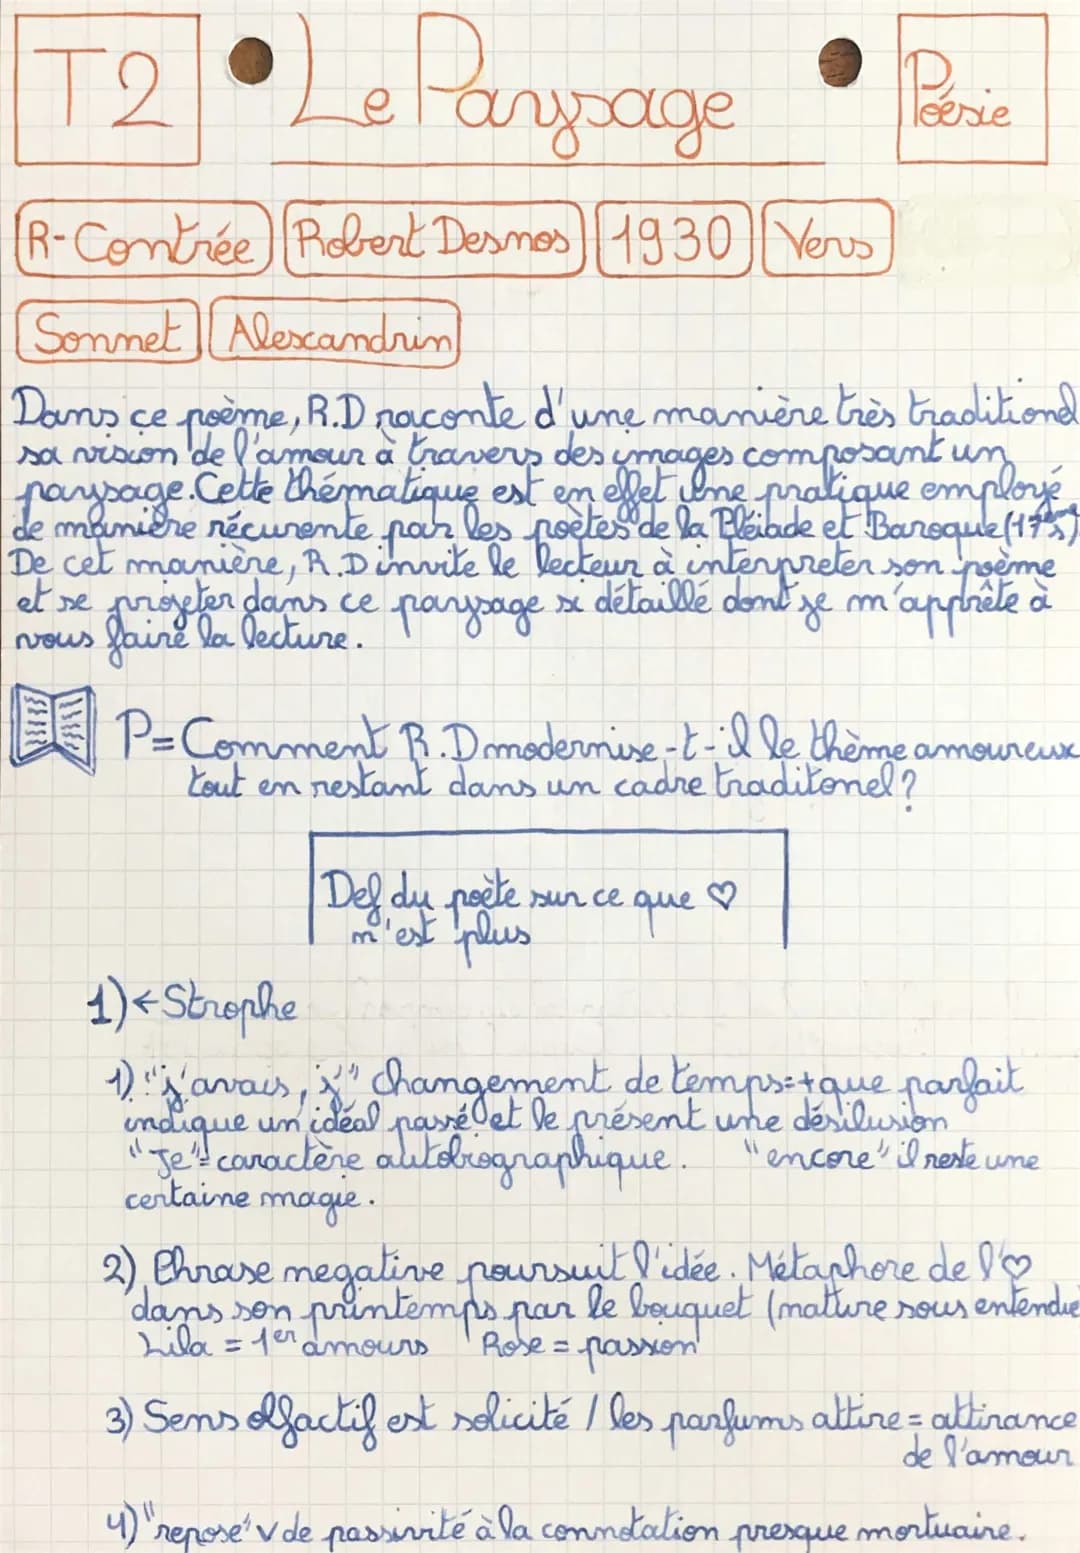 T2
Le Paysage
Poésie
R-Contrée
Robert Desnos
1930
Vers
Sonnet
Alexandrin
Dans ce poème, R.D raconte d'une manière très traditionel
sa vision de l'amour à travers des images composant un
paysage. Cette thématique est en effet une pratique employé
de manière récurente par les poètes de la Pléiade et Baroque (17ème s)
De cet manière, R.D invite le lecteur à interpreter son poème
et se projeter dans ce paysage si détaillé dont je m'apprête à
vous faire la lecture.
P= Comment R.D modernise-t-il le thème amoureux
tout en restant dans un cadre traditonel?
Def du poète sur ce que ♡
n'est plus
1) ← Strophe
1) "j'avais, j'" changement de temps = + que parfait
indique un idéal passé et le présent une désilusion
"Je" = caractère autobiographique. "encore" il reste une
certaine magie.
2) Phrase negative poursuit l'idée. Métaphore de l'♡
dans son printemps par le bouquet (natture sous entendue
Lila = 1er amours Rose = passion
3) Sens olfactif est solicité / les parfums attire = attirance
de l'amour
4) "repose" v de passivité à la connotation presque mortuaire.